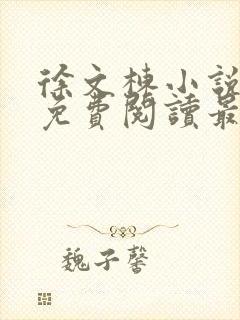 徐文棟小說
免費閱讀最
魏子馨